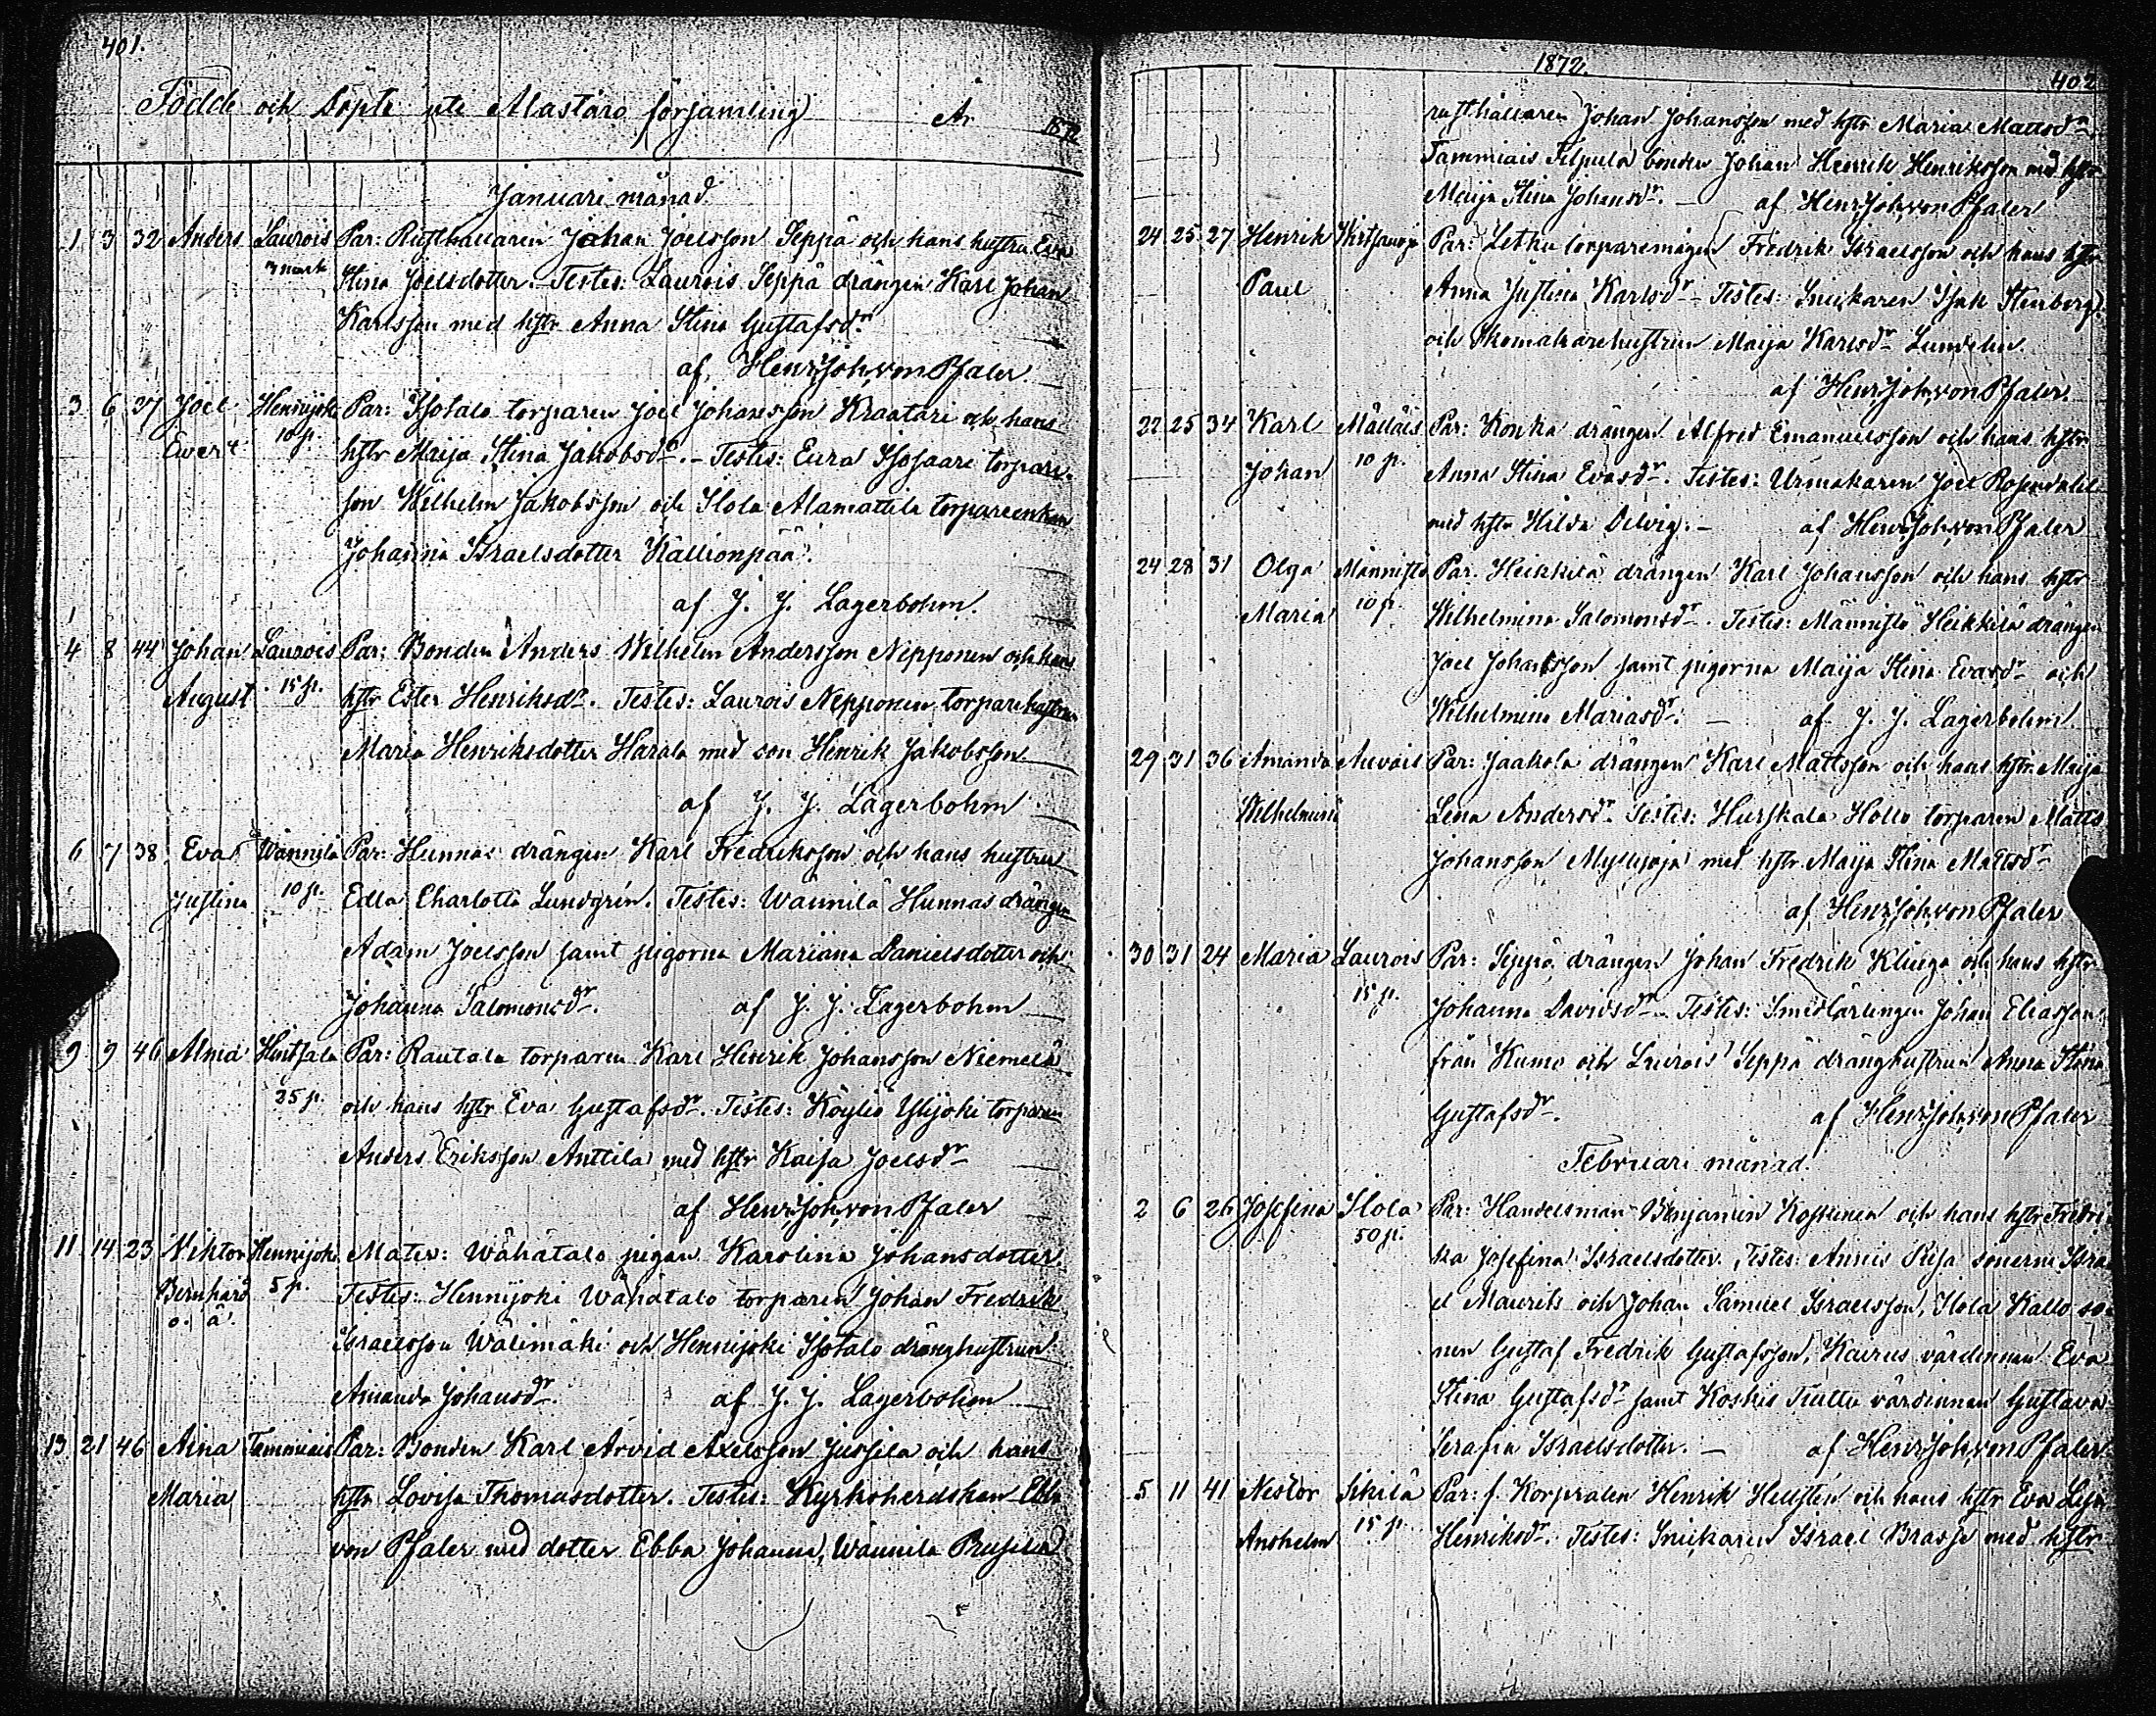 401.
Födde och Döpte uti Alastaro församling År 1872
Januari månad.
1 3 32 Anders Laurois Par: Rusthållaren Johan Joelsson Seppä och hans hustru Eva
3 mark Stina Joelsdotter. Testes: Laurois Seppä drängen Karl Johan
Karlsson med hstr Anna Stina Gustafsdr
af Henr. Joh. von Pfaler.
3 6 37 Joel Hennijoki Par: Isotalo torparen Joel Johansson Kraatari och hans
Evert 10 p. hstr Maija Stina Jakobsdr. Testes: Eura Isosaari torpare-
son Wilhelm Jakobsson och Ilola Alamattila torpareenkan
Johanna Israelsdotter Kallionpää.
af J. J. Lagerbohm.
4 8 44 Johan Laurois Par: Bonden Anders Wilhelm Andersson Nepponen och hans
August 15 p. hstr Ester Henriksdr. Testes: Laurois Nepponen torparehustrun
Maria Henriksdotter Harala med son Henrik Jakobsson.
af J. J. Lagerbohm
6 7 38 Eva Wännilä Par: Hunnas drängen Karl Fredriksson och hans hustru
Justina 10 p. Edla Charlotta Lundgrén. Testes: Wännilä Hunnas drängen
Adam Joelsson samt pigorna Mariana Danielsdotter och
Johanna Salomonsdr. af J. J. Lagerbohm
9 9 46 Alma Hintsala Par: Rautala torparen Karl Henrik Johansson Niemelä
25 p. och hans hstr Eva Gustafsdr. Testes: Köyliö Yllijoki torparen
Anders Eriksson Anttila med hstr Kaisa Joelsdr
af Henr. Joh. von Pfaler
11 14 23 Niktor Hennijoki Mater: Wähätalo pigan Karolina Johansdotter.
Bernhard 5 p. Testes: Hennijoki Wähätalo torparen Johan Fredrik
o. ä. Israelsson Wälimäki och Hennijoki Isotalo dränghustrun
Amanda Johansdr. af J. J. Lagerbohm
13 21 46 Aina Tammiais Par: Bonden Karl Arvid Axelsson Jussila och hans
Maria hstr Lovisa Thomasdotter. Testes: Kyrkoherdskan Ebba
von Pfaler med dotter Ebba Johanna, Wännilä Prusila
1872. 402
rusthållaren Johan Johansson med hstr Maria Mattsdr
Tammiais Pilpula bonden Johan Henrik Henriksson med hstr
Maija Stina Johansdr. af Henr. Joh. von Pfaler
24 25 27 Henrik Wirtsanoja Par: Lethu torparemågen Fredrik Israelsson och hans hstr
Paul Anna Justina Karlsdr. Testes: Snickaren Isak Stenberg
och skomakarehustrun Maija Karlsdr Lundelin.
af Henr. Joh. von Pfaler.
22 25 34 Karl Mälläis Par: Konka drängen Alfred Emanuelsson och hans hstr
Johan 10 p. Anna Stina Evasdr. Testes: Urmakaren Joel Rosendahl
med hstr Hilda Delvig. af Henr. Joh. von Pfaler
24 28 31 Olga Männistö Par. Heikkilä drängen Karl Johansson och hans hstr
Maria 10 p. Wilhelmina Salomonsdr. Testes: Männistö Heikkilä drängen
Joel Johansson samt pigorna Maija Stina Evasdr och
Wilhelmina Mariasdr. af J. J. Lagerbohm.
29 31 36 Amanda Auvais Par: Jaakola drängen Karl Mattsson och hans hstr Maija
Wilhelmina Lena Andersdr. Testes: Hurskala Hollo torparen Matts
Johansson Myllyoja med hstr Maija Stina Mattsdr
af Henr. Joh. von Pfaler
30 31 24 Maria Laurois Par: Seppä drängen Johan Fredrik Klinga och hans hstr
15 p. Johanna Davidsdr. Testes: Smidlärlingen Johan Eliasson
från Kumo och Laurois Seppä dränghustrun Anna Stina
Gustafsdr. af Henr. Joh. von Pfaler
Februari månad.
2 6 26 Josefina Ilola Par: Handelsman Benjamin Koskinen och hans hstr Fredri-
50 p. ka Josefina Israelsdotter. Testes: Annis Pija sönerne Isra-
el Maurits och Johan Samuel Israelsson, Ilola Kallo so-
nen Gustaf Fredrik Gustafsson, Kairus värdinnan Eva
Stina Gustafsdr samt Koskis Tiultu värdinnan Gustava
Serafia Israelsdotter. af Henr. Joh. von Pfaler
5 11 41 Nestor Sikilä Par: f. Korpralen Henrik Hellstén och hans hstr Eva Lisa
Anshelm 15 p. Henriksdr. Testes: Snickaren Israel Brasse med hstr